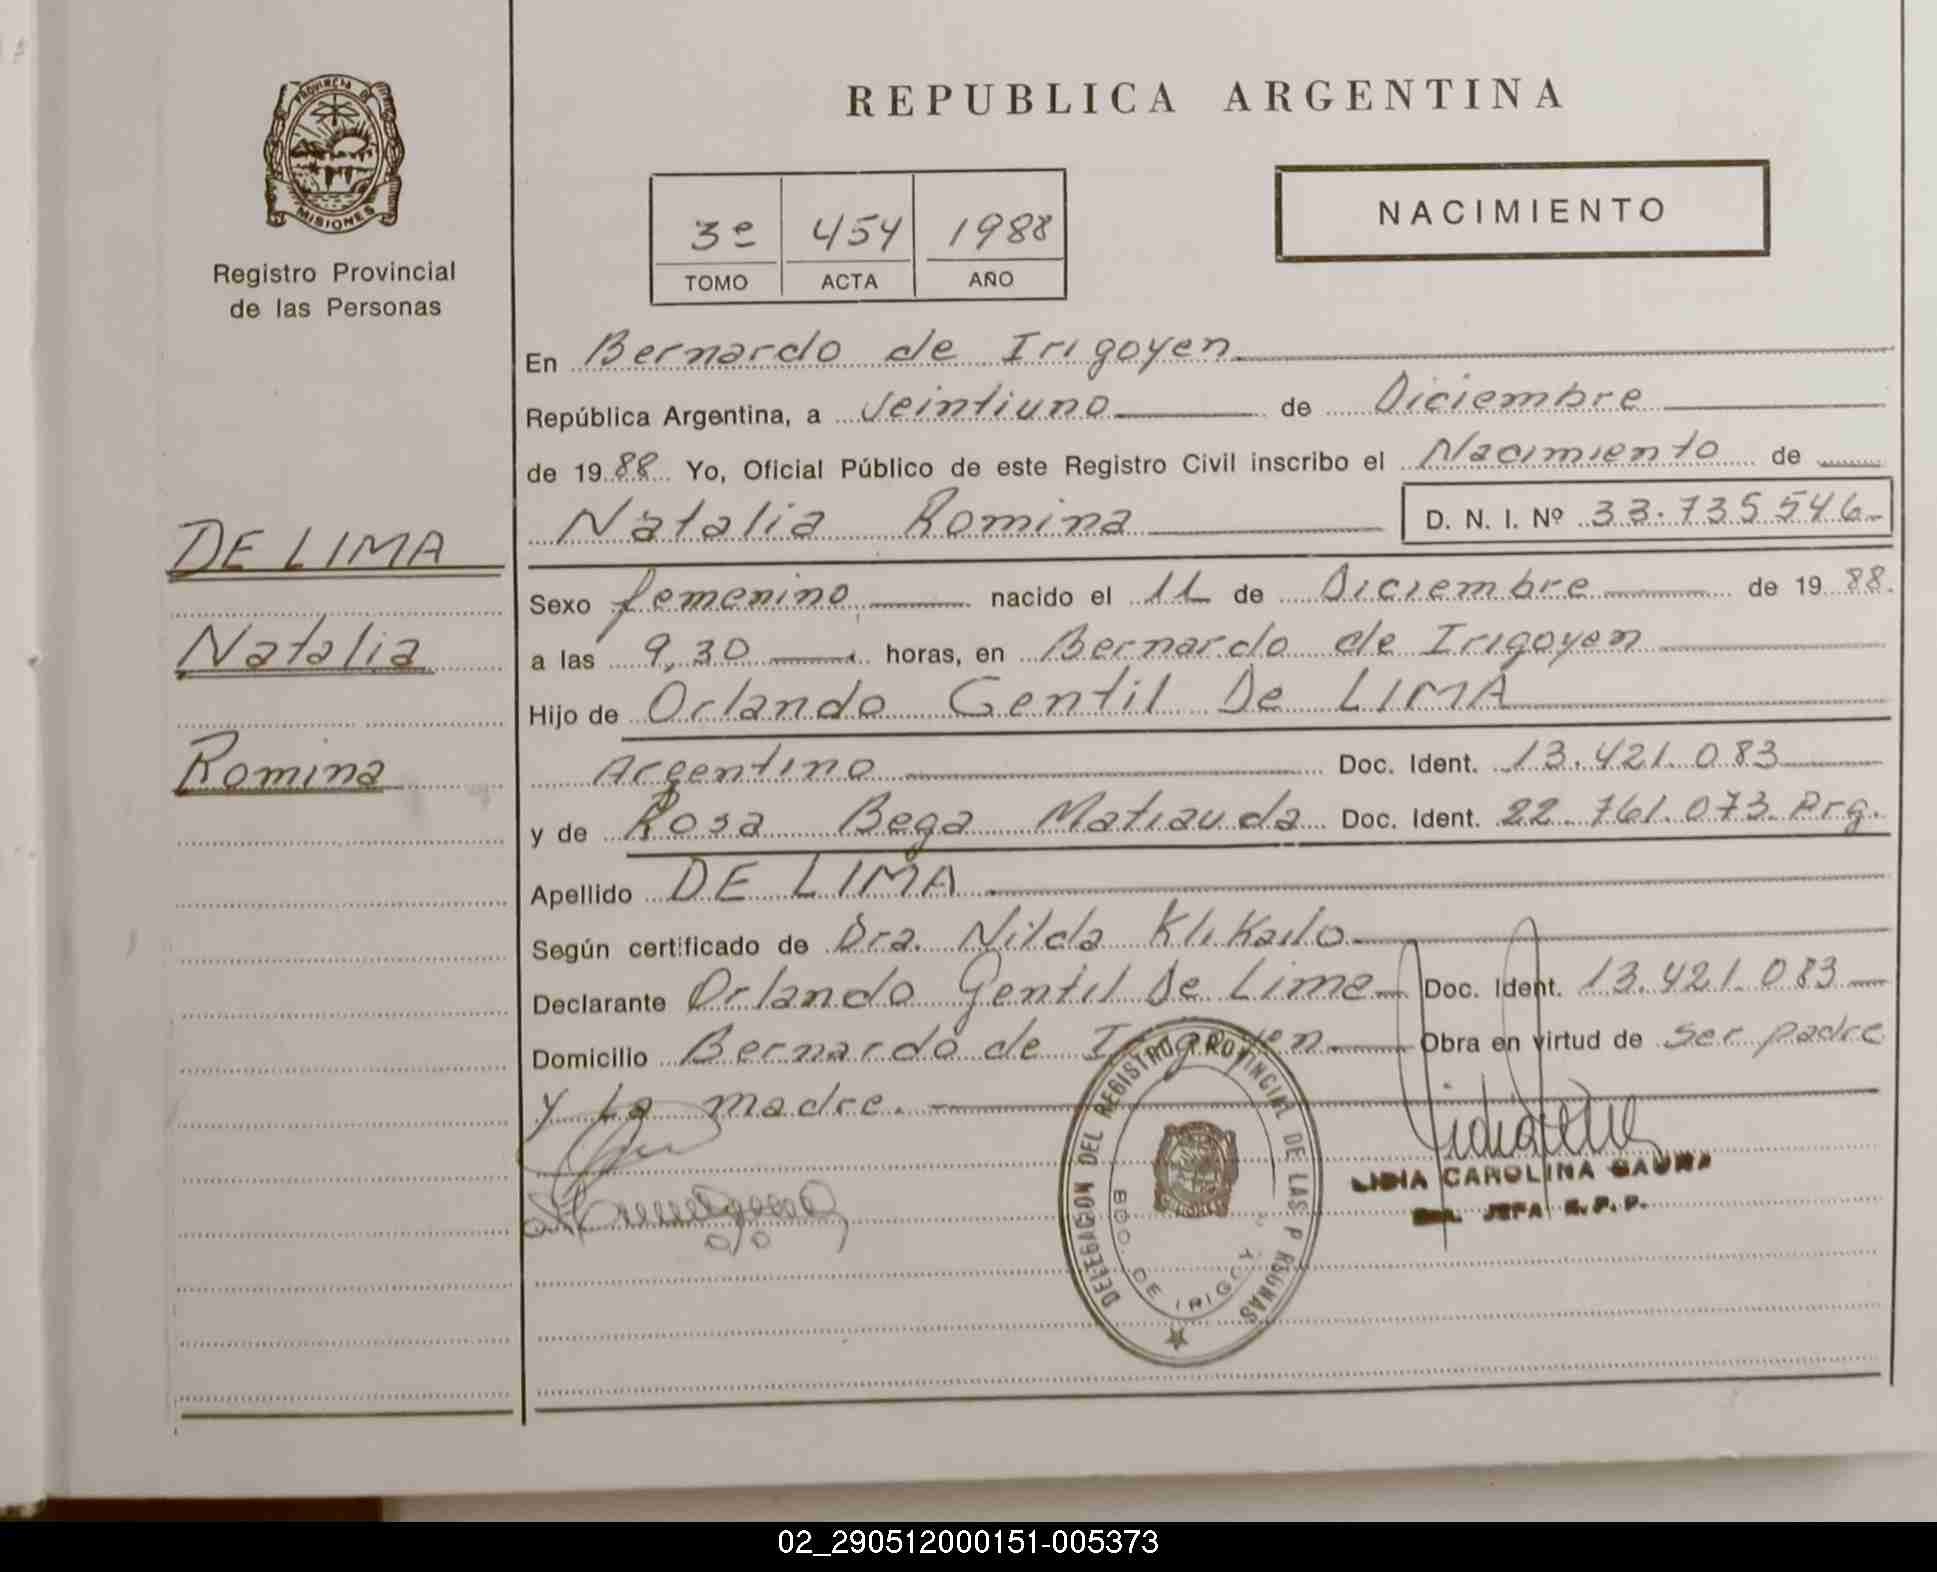 PROVINCIA DE
MISIONES
Registro Provincial
de las Personas
DE LIMA
Natalia
Romina
REPUBLICA ARGENTINA
3º 454 1988
TOMO ACTA AÑO
NACIMIENTO
En Bernardo de Irigoyen
República Argentina, a veintiuno de Diciembre
de 1988 Yo, Oficial Público de este Registro Civil inscribo el Nacimiento de
Natalia Romina D. N. I. Nº 33.735546
Sexo femenino nacido el 11 de Diciembre de 1988.
a las 9,30 horas, en Bernardo de Irigoyen
Hijo de Orlando Gentil De LIMA
Argentino Doc. Ident. 13.421.083
y de Rosa Bega Matiauda Doc. Ident. 22.761.073. Arg.
Apellido DE LIMA
Según certificado de Dra. Nilda
Declarante Orlando Gentil De Lima Doc. Ident. 13.421.083
Domicilio Bernardo de Irigoyen Obra en virtud de ser padre
y La madre.
DELEGACION DEL REGISTRO PROVINCIAL DE LAS P RSONAS
BDO. DE IRIGOY
LIDIA CAROLINA
JEFA R.P.P.
02_290512000151-005373